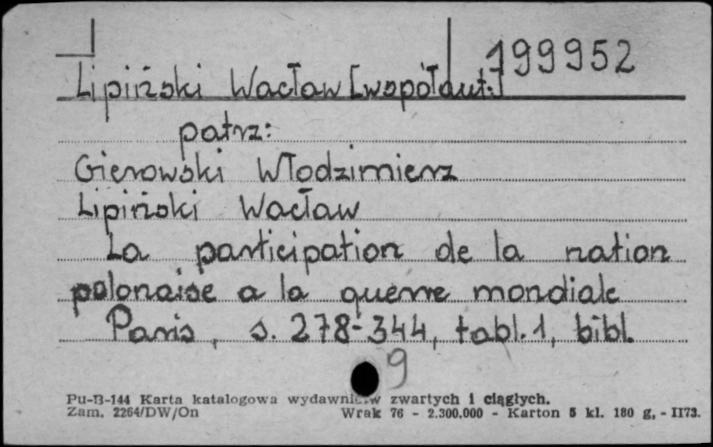 199952
Lipiński Wacław [współaut.]
patrz:
Gierowski Włodzimierz
Lipiński Wacław
La participation de la nation
polonaise a la guerre mondiale
Paris, s. 278-344, tabl. 1, bibl.
9
Pu-B-144 Karta katalogowa wydawnictw zwartych i ciągłych.
Zam. 2264/DW/On Wrak 76 - 2.300.000 - Karton 5 kl. 180 g, - II73.